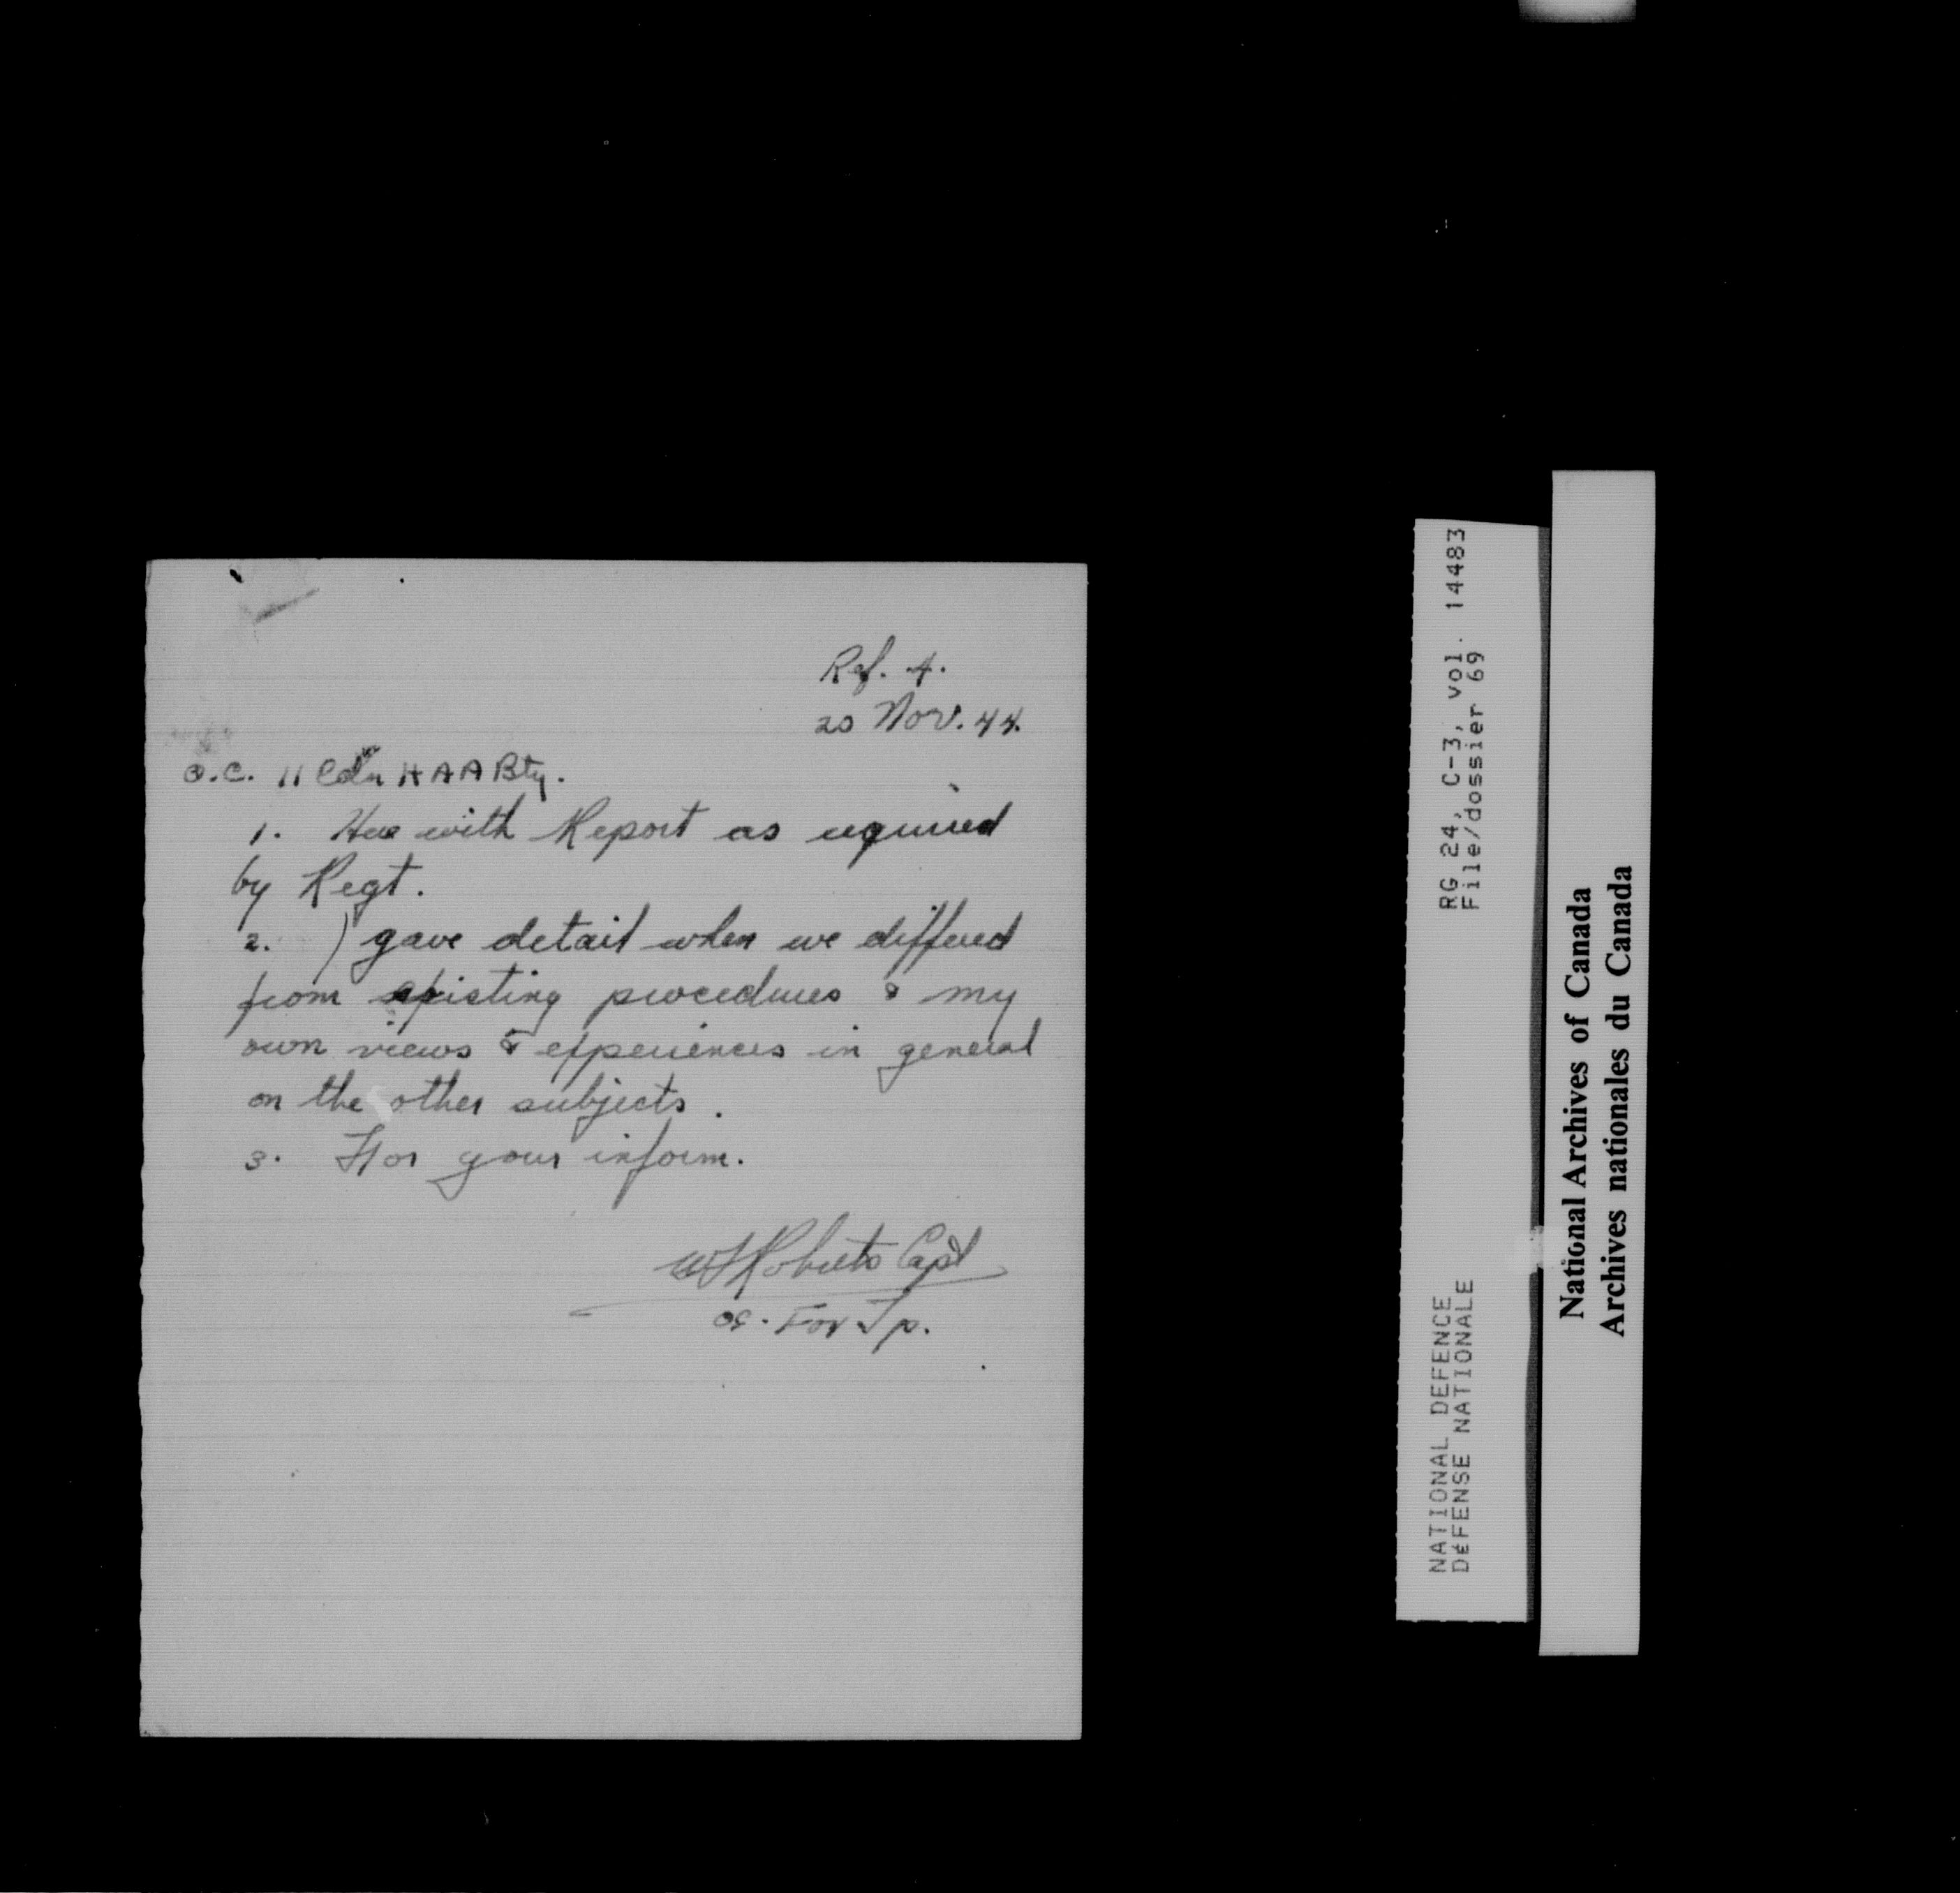 Ref. 4.
20 Nov. 44.
O.C. 11 Cdn H A A Bty.
1. Here with Report as required
by Regt.
2. I gave detail when we differed
from existing procedures & my
own views & experiences in general
on the other subjects.
3. For your inform.
Roberts Capt
Tp.
RG 24, C-3, vol. 14483
File/dossier 69
NATIONAL DEFENCE
DÉFENSE NATIONALE
National Archives of Canada
Archives nationales du Canada